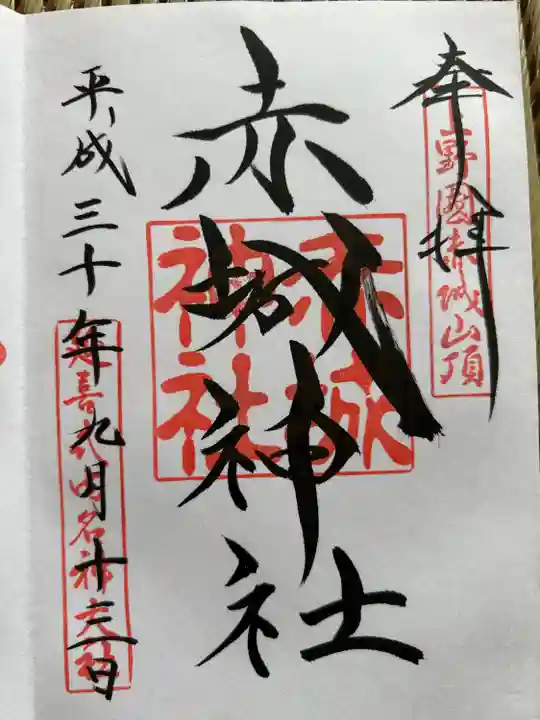 奉拝
上野國赤城山頂
赤城神社
赤城
神社
平成三十年九月十三日
延喜式内名神大社